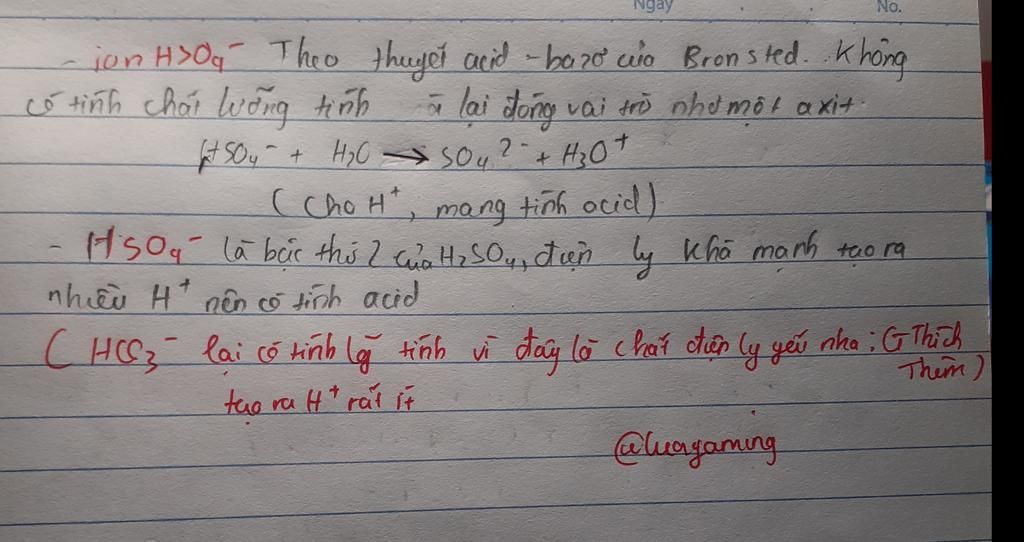 Ngày No.
- ion HSO₄⁻ Theo thuyết acid - bazơ của Bronsted. Không
có tính chất lưỡng tính à lại đóng vai trò như một axit.
HSO₄⁻ + H₂O → SO₄²⁻ + H₃O⁺
(Cho H⁺, mang tính acid)
- HSO₄⁻ là bậc thứ 2 của H₂SO₄, điện ly khá mạnh tạo ra
nhiều H⁺ nên có tính acid
(HCO₃⁻ lại có tính lg tính vì đây là chất điện ly yếu nha; GThích
Thêm)
tạo ra H⁺ rất ít
@luagaming